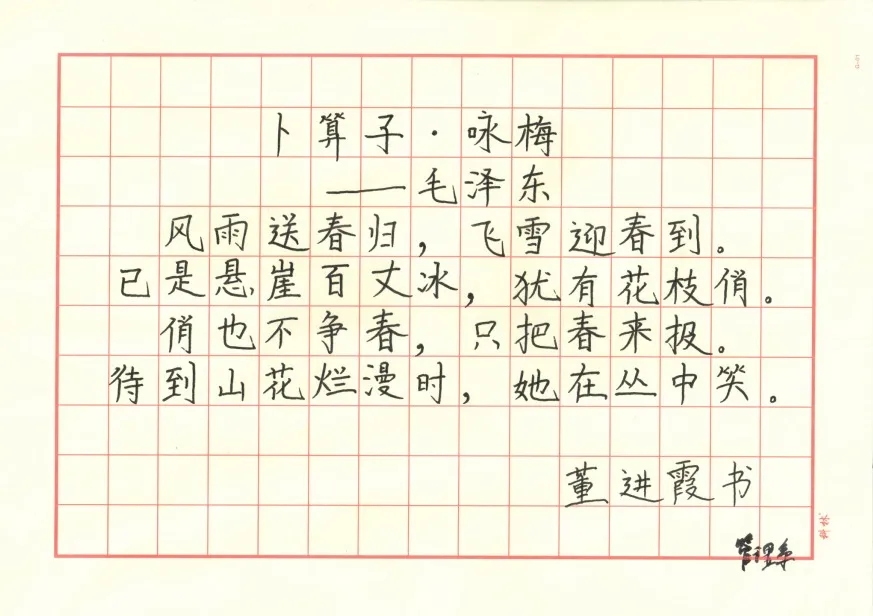 卜算子·咏梅
——毛泽东
风雨送春归，飞雪迎春到。
已是悬崖百丈冰，犹有花枝俏。
俏也不争春，只把春来报。
待到山花烂漫时，她在丛中笑。
董进霞书
管理系